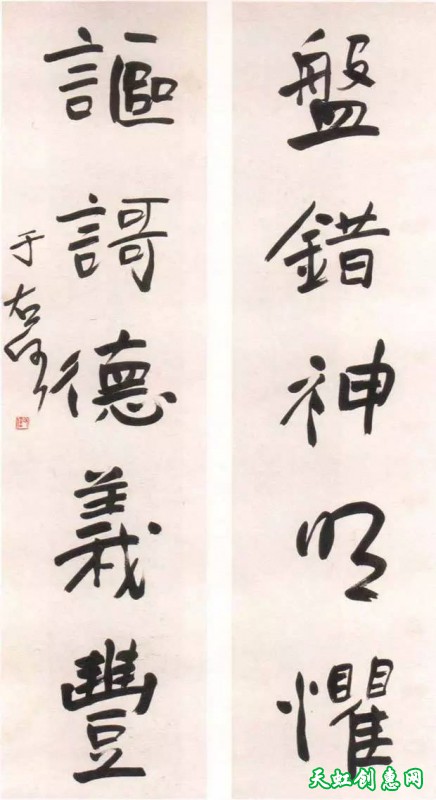 盤錯神明懼
謳謌德義豐
于右任
天虹创惠网